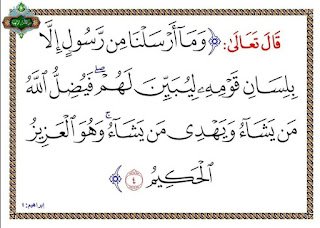 قَالَ تَعَالَىٰ: ﴿وَمَآ أَرْسَلْنَا مِن رَّسُولٍ إِلَّا
بِلِسَانِ قَوْمِهِۦ لِيُبَيِّنَ لَهُمْ ۖ فَيُضِلُّ ٱللَّهُ
مَن يَشَآءُ وَيَهْدِى مَن يَشَآءُ ۚ وَهُوَ ٱلْعَزِيزُ
ٱلْحَكِيمُ ٤﴾
إبراهيم: ٤